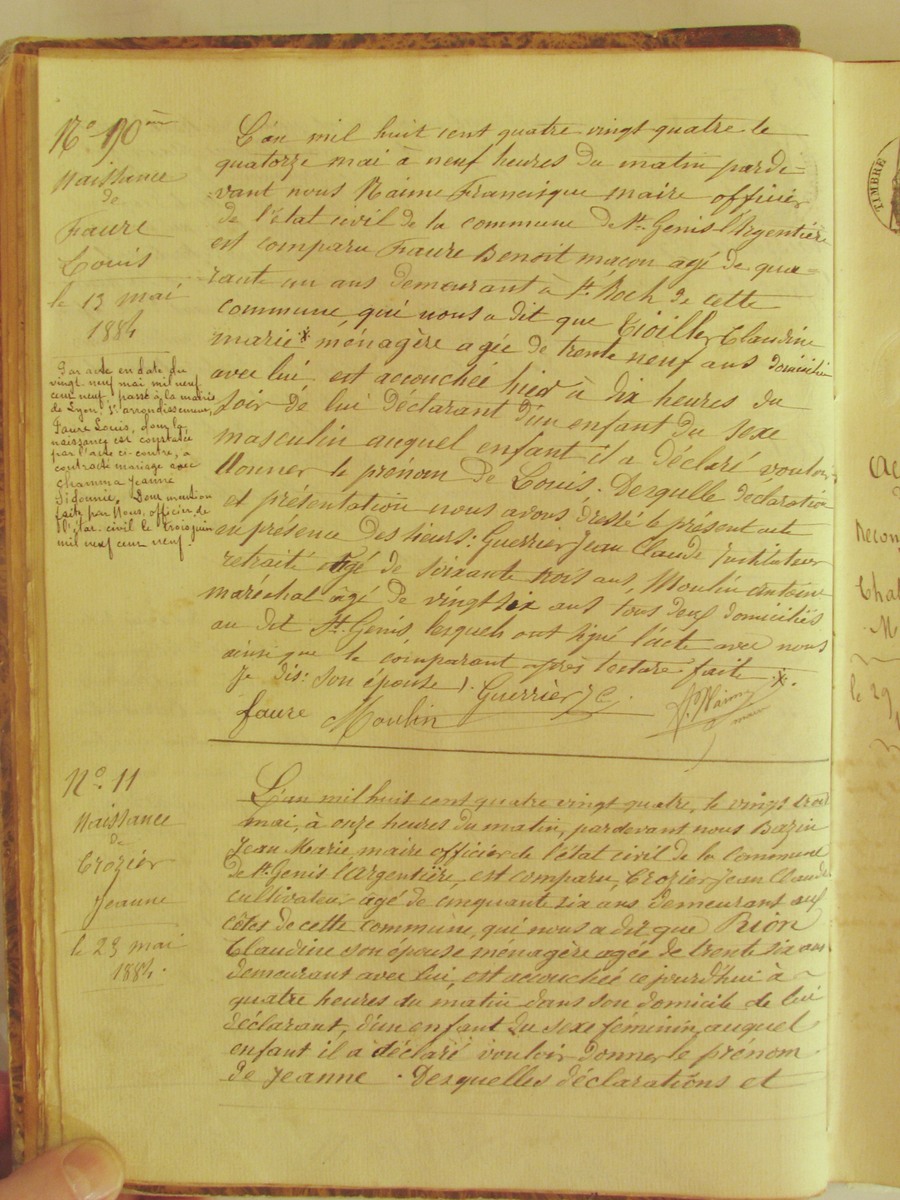 N° 10ème
Naissance
de
Faure
Louis
le 13 mai
1884
Par acte en date du
vingt neuf mai mil neuf
cent neuf, passé à la mairie
de Lyon, arrondissement,
Faure Louis, dont la
naissance est constatée
par l'acte ci-contre, a
contracté mariage avec
Chamma Jeanne
Sidonnie. Dont mention
faite par Nous, officier de
l'état civil le trois juin
mil neuf cent neuf.
L'an mil huit cent quatre vingt quatre le
quatorze mai à neuf heures du matin parde=
=vant nous Naime Francisque maire officier
de l'état civil de la commune de St. Genis l'Argentière
est comparu Faure Benoit maçon agé de qua=
rante un ans demeurant à St. Roch de cette
commune, qui nous a dit que Claudine
marie * ménagère agée de trente neuf ans domicilié
avec lui est accouchée hier à dix heures du
soir de lui déclarant d'un enfant du sexe
masculin auquel enfant il a déclaré vouloir
donner le prénom de Louis. Desquelle déclaration
et présentation nous avons dressé le présent acte
en présence des sieurs: Guerrier Jean Claude Instituteur
retraité agé de soixante trois ans, Moulin antoine
maréchal âgé de vingt six ans tous deux domiciliés
au dit St. Genis, lesquels ont signé l'acte avec nous
ainsi que le comparant après lecture faite *.
Je dis: son épouse). Guerrier J C
faure Moulin maire
N° 11
Naissance
de
Crozier
Jeanne
le 23 mai
1884.
L'an mil huit cent quatre vingt quatre, le vingt trois
mai, à onze heures du matin, pardevant nous Bazin
Jean Marie, maire officier de l'état civil de la Commune
de St. Genis l'Argentière, est comparu, Crozier Jean Claude
cultivateur agé de cinquante six ans demeurant aux
côtes de cette commune, qui nous a dit que Rion
Claudine son épouse ménagère agée de trente six ans
demeurant avec lui, est accouchée ce jourd'hui à
quatre heures du matin dans son domicile de lui
déclarant, d'un enfant du sexe féminin, auquel
enfant il a déclaré vouloir donner le prénom
de Jeanne. Desquelles déclarations et
TIMBRE
le 29